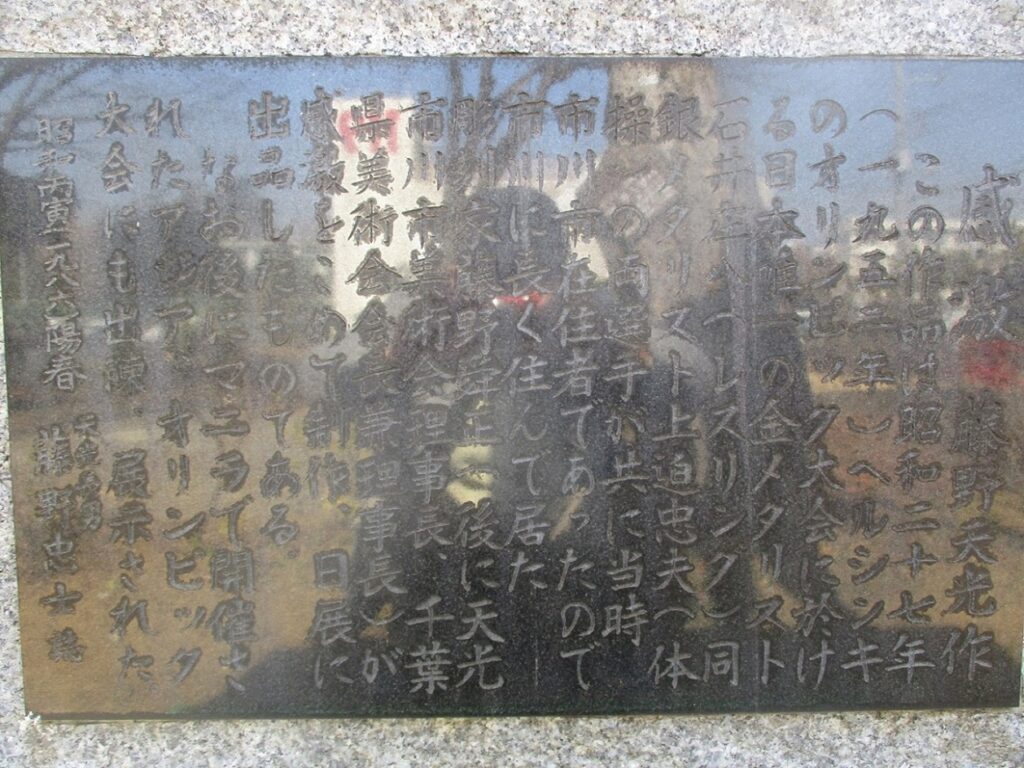 感激 藤野天光作
この作品は昭和二十七年
(一九五二年)ヘルシンキ
のオリンピック大会に於け
る日本唯一の金メダリスト
石井庄八(レスリング)同
銀メダリスト上迫忠夫(体
操)の両選手が共に当時
市川市在住者であったので
市川に長く住んで居た
彫刻家藤野舜正(後に天光
市川市美術会理事長、千葉
県美術会会長兼理事長)が
感激をこめて制作、日展に
出品したものである。
なお後にマニラで開催さ
れたアジア・オリンピック
大会にも出陳、展示された。
昭和丙寅一九八六陽春 藤野忠士